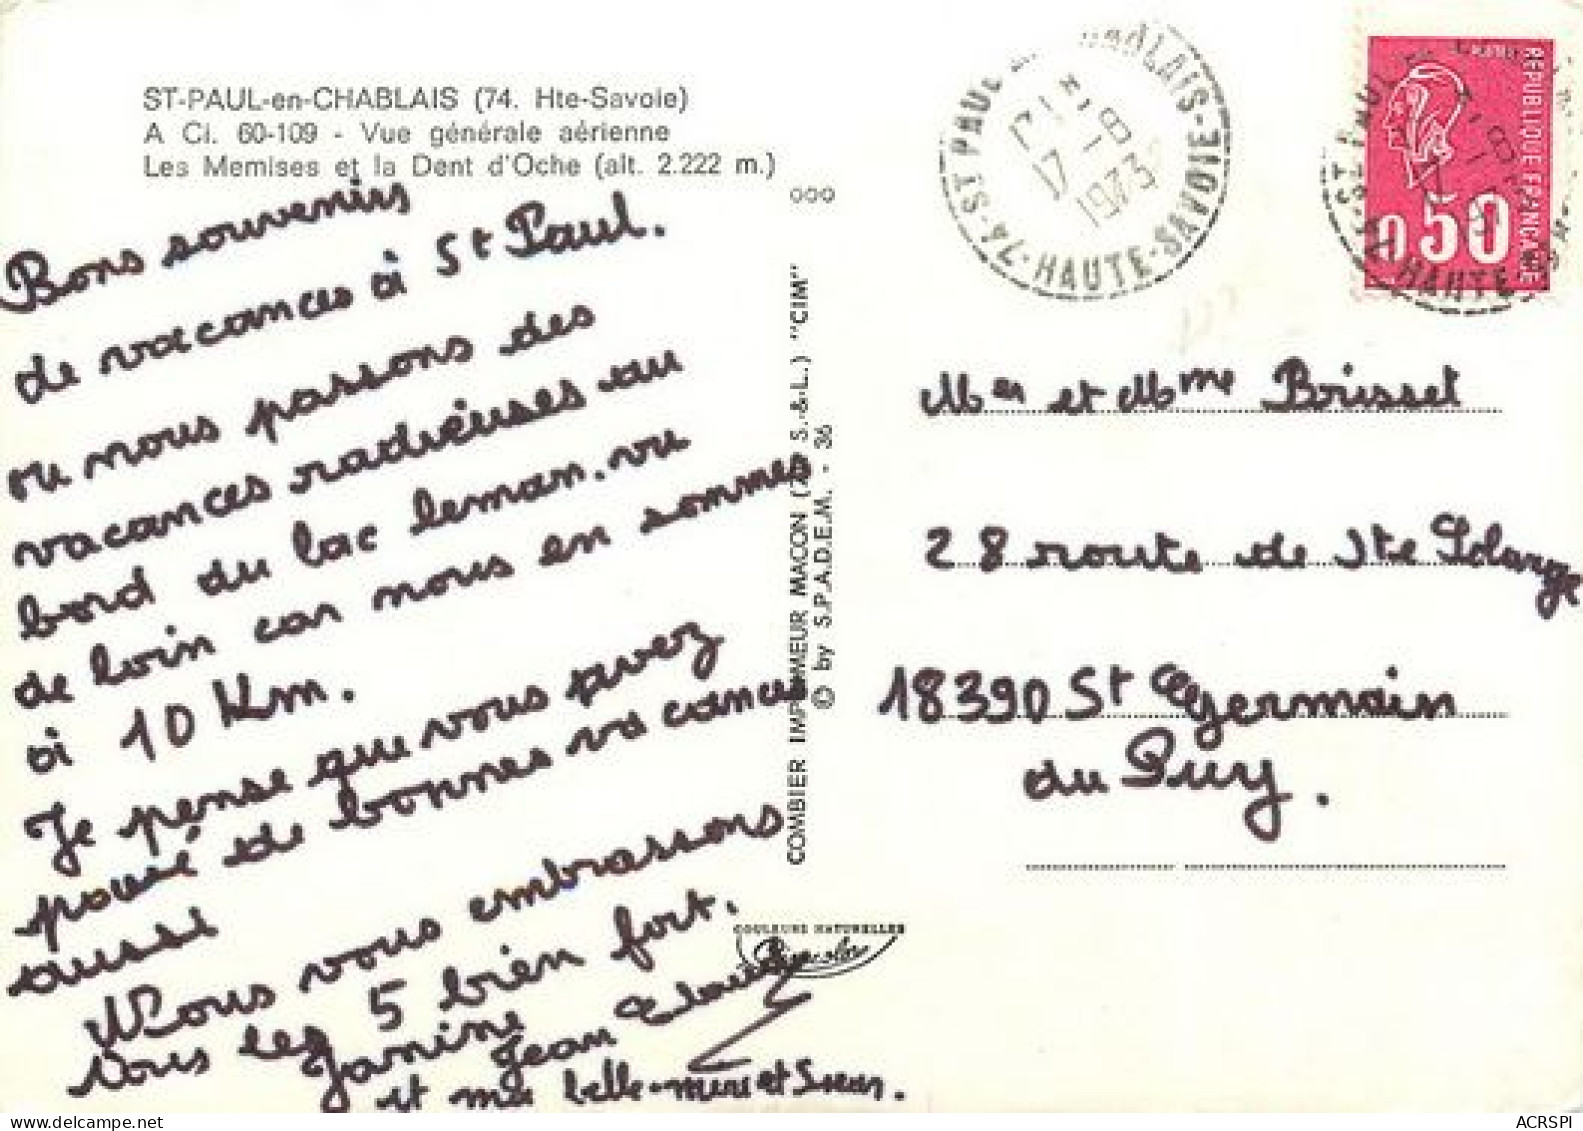 ST-PAUL-en-CHABLAIS (74. Hte-Savoie)
A Ci. 60-109 - Vue générale aérienne
Les Memises et la Dent d'Oche (alt. 2.222 m.)
Bons souvenirs
de vacances à St Paul.
ou nous passons des
vacances radieuses au
bord du lac leman. vu
de loin car nous en sommes
à 10 Km.
Je pense que vous avez
passé de bonnes vacances
aussi
Nous vous embrassons
tous les 5 bien fort.
Janine Jean Claude
et ma belle-mère et Sœur.
COULEURS NATURELLES
COMBIER IMPRIMEUR MACON (S.-&-L.) "CIM"
© by S.P.A.D.E.M. - 36
ST PAUL EN CHABLAIS
74 - HAUTE-SAVOIE
17 -8
1973
RÉPUBLIQUE FRANÇAISE
0,50
Mer et Mme Boisset
28 route de Ste
18390 St Germain
du Puy.
ACRSPI